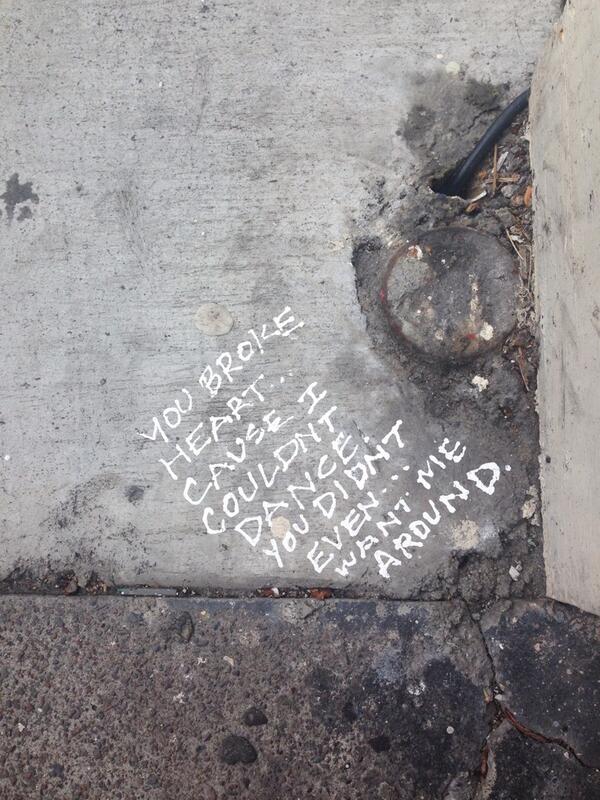 YOU BROKE
HEART...
CAUSE I
COULDNT
DANCE.
YOU DIDNT
EVEN...
WANT ME
AROUND.